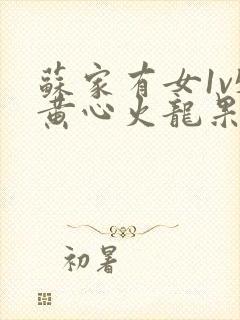 蘇家有女1v
黃心火龍果
初暑